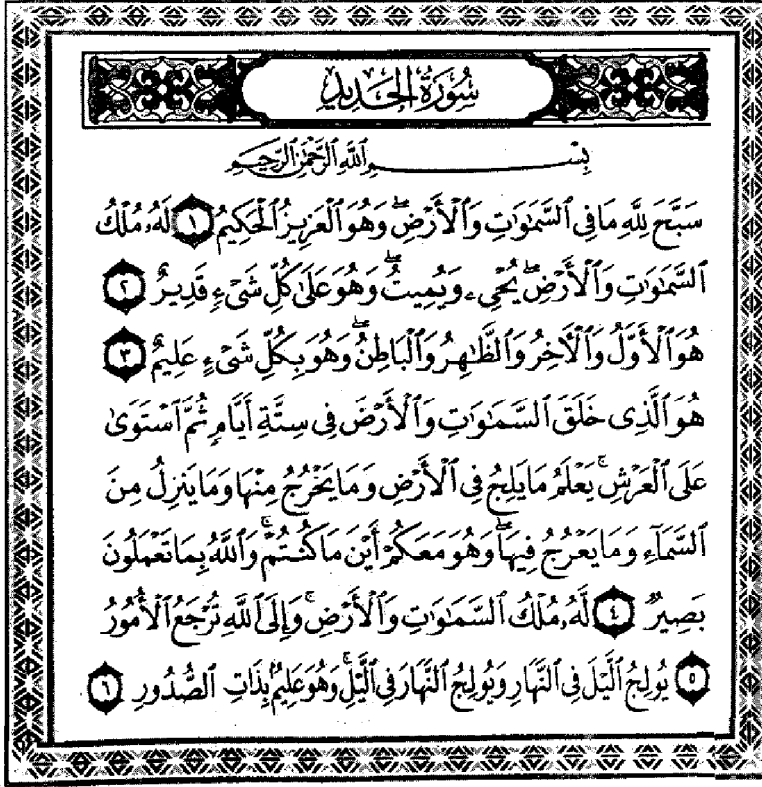 سُورَةُ الحَدِيدِ
بِسْمِ ٱللَّهِ ٱلرَّحْمَٰنِ ٱلرَّحِيمِ
سَبَّحَ لِلَّهِ مَا فِى ٱلسَّمَٰوَٰتِ وَٱلْأَرْضِ ۖ وَهُوَ ٱلْعَزِيزُ ٱلْحَكِيمُ ١ لَهُۥ مُلْكُ
ٱلسَّمَٰوَٰتِ وَٱلْأَرْضِ ۖ يُحْىِۦ وَيُمِيتُ ۖ وَهُوَ عَلَىٰ كُلِّ شَىْءٍ قَدِيرٌ ٢
هُوَ ٱلْأَوَّلُ وَٱلْءَاخِرُ وَٱلظَّٰهِرُ وَٱلْبَاطِنُ ۖ وَهُوَ بِكُلِّ شَىْءٍ عَلِيمٌ ٣
هُوَ ٱلَّذِى خَلَقَ ٱلسَّمَٰوَٰتِ وَٱلْأَرْضَ فِى سِتَّةِ أَيَّامٍ ثُمَّ ٱسْتَوَىٰ
عَلَى ٱلْعَرْشِ ۚ يَعْلَمُ مَا يَلِجُ فِى ٱلْأَرْضِ وَمَا يَخْرُجُ مِنْهَا وَمَا يَنزِلُ مِنَ
ٱلسَّمَآءِ وَمَا يَعْرُجُ فِيهَا ۖ وَهُوَ مَعَكُمْ أَيْنَ مَا كُنتُمْ ۚ وَٱللَّهُ بِمَا تَعْمَلُونَ
بَصِيرٌ ٤ لَّهُۥ مُلْكُ ٱلسَّمَٰوَٰتِ وَٱلْأَرْضِ ۚ وَإِلَى ٱللَّهِ تُرْجَعُ ٱلْأُمُورُ
٥ يُولِجُ ٱلَّيْلَ فِى ٱلنَّهَارِ وَيُولِجُ ٱلنَّهَارَ فِى ٱلَّيْلِ ۚ وَهُوَ عَلِيمٌۢ بِذَاتِ ٱلصُّدُورِ ٦